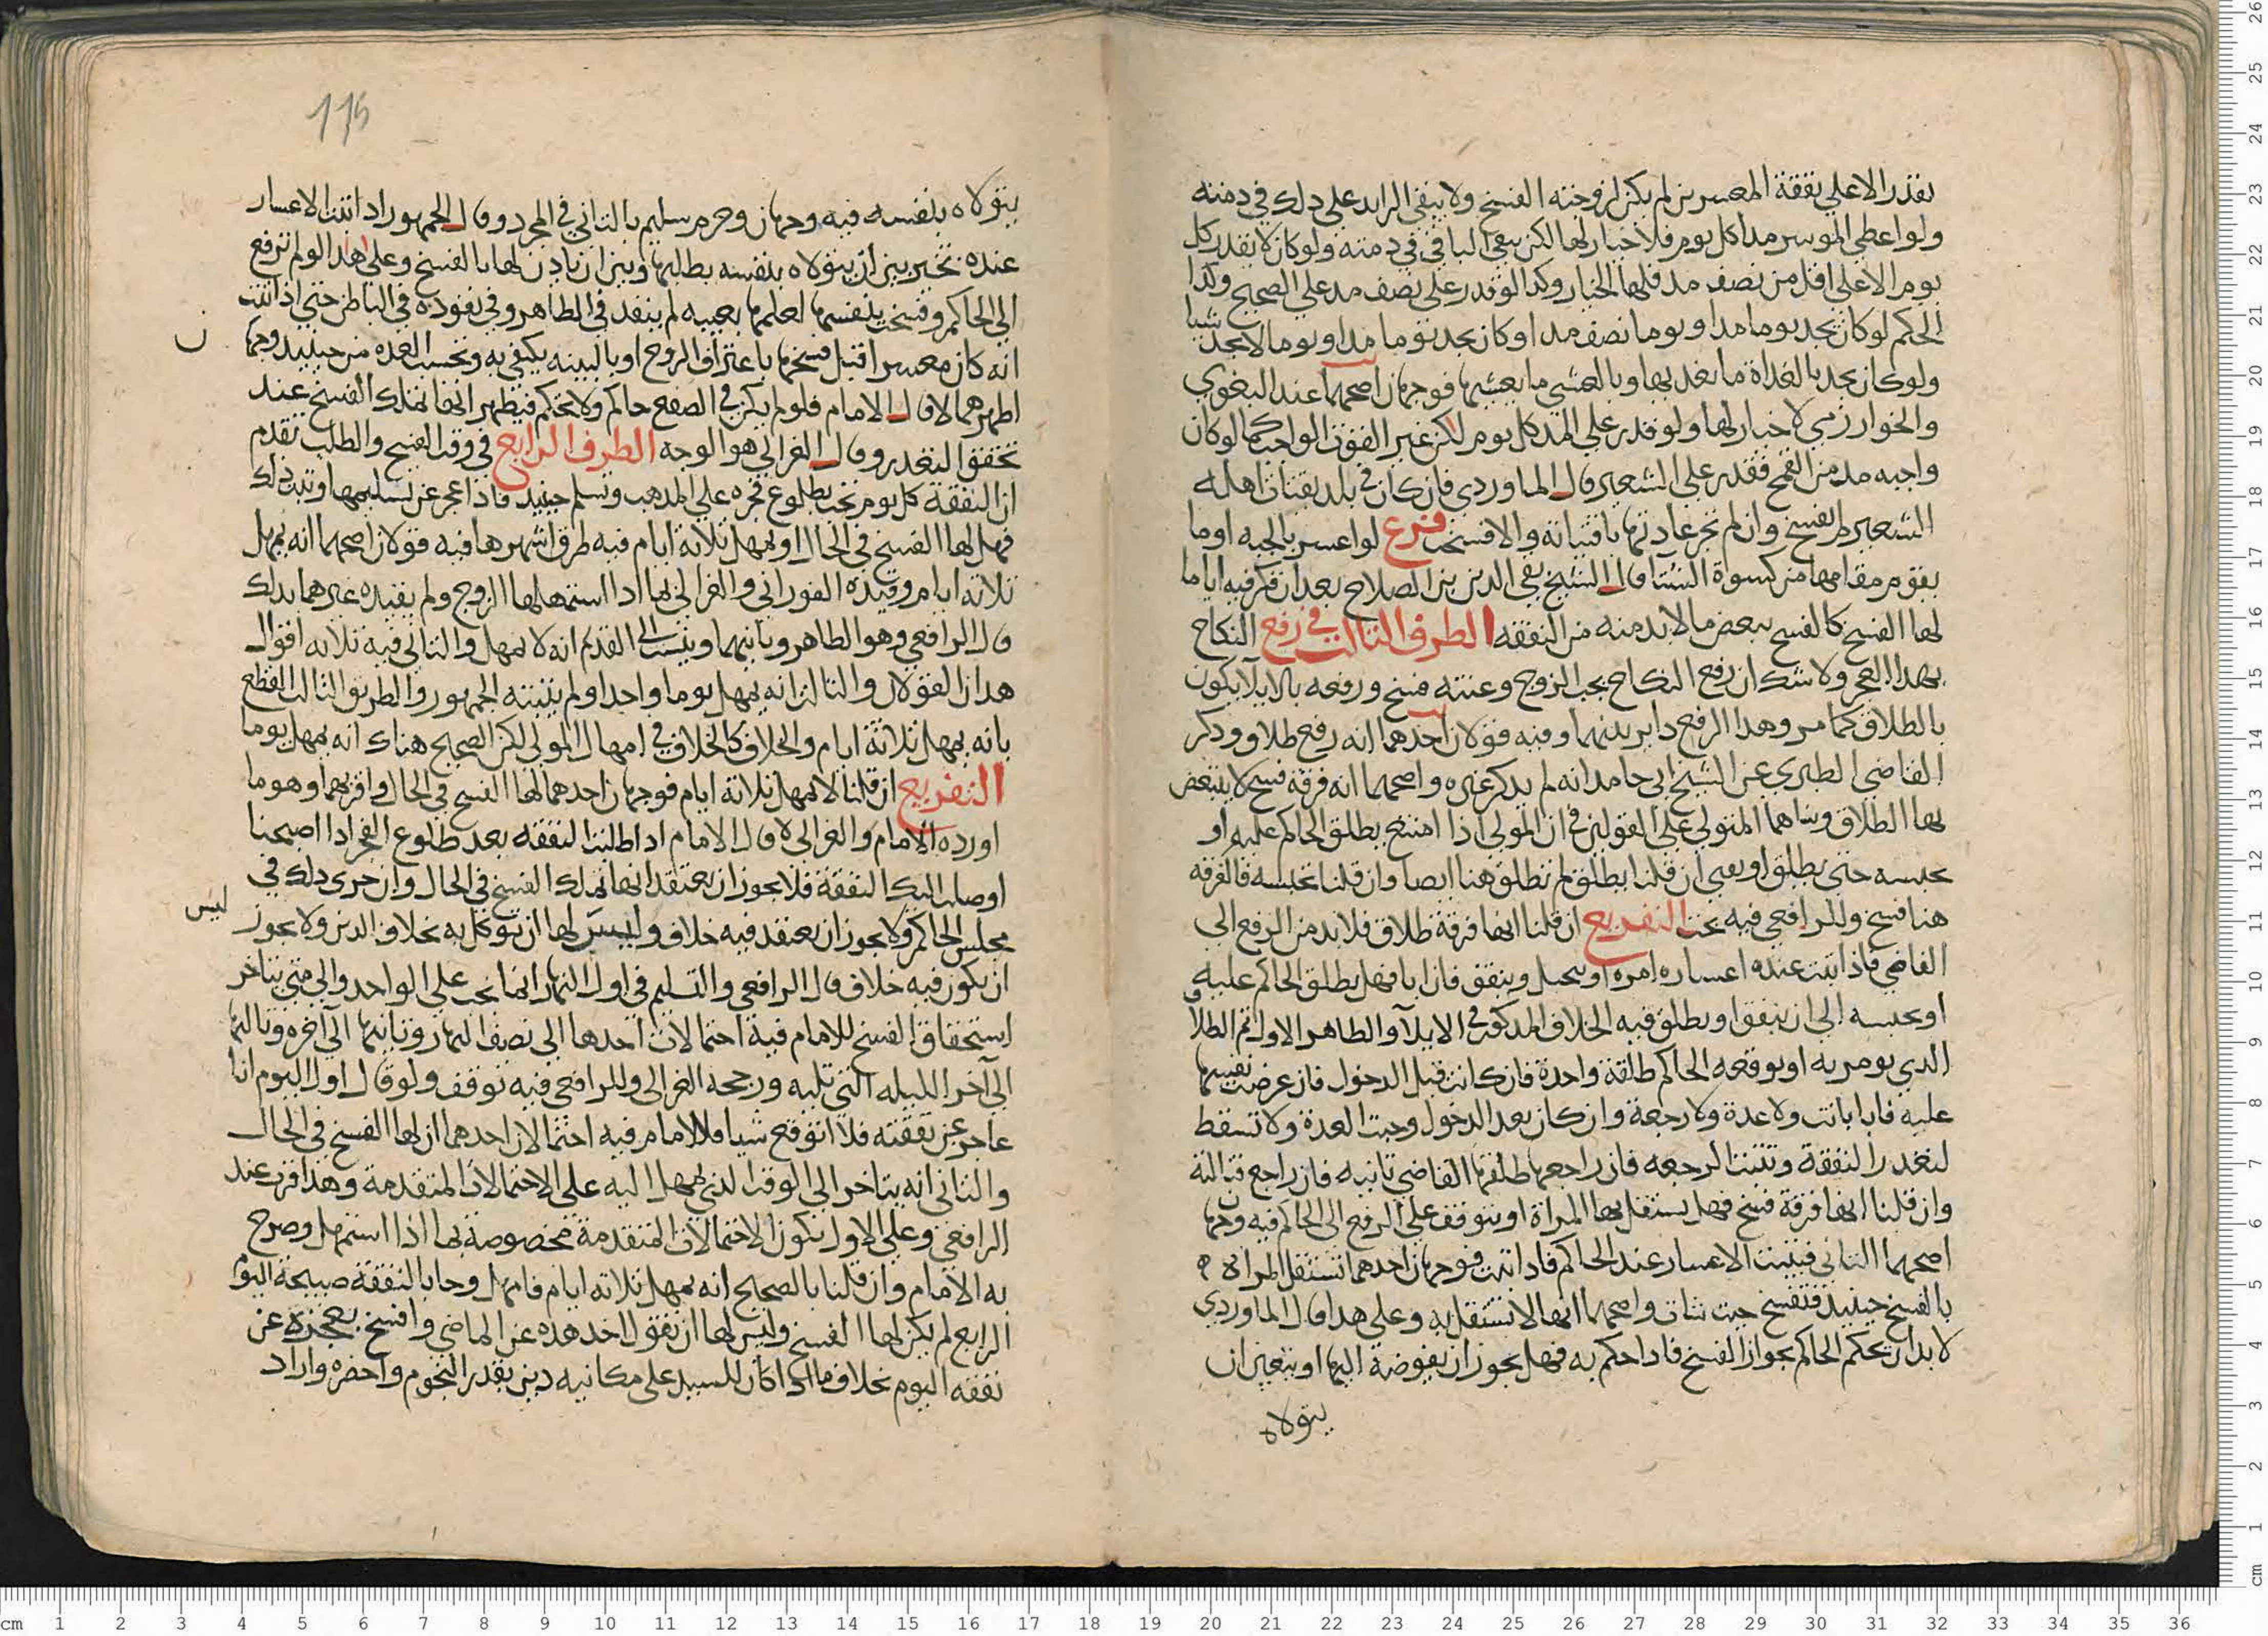 يقدر الا على نفقة المعسرين لم يكن لزوجته الفسخ ولا يبقى الزايد على ذلك في ذمته
ولو اعطى الموسر مدا كل يوم فلا خيار لها لكن يبقى الباقي في ذمته ولو كان لا يقدر كل
يوم الا على اقل من نصف مد فلها الخيار وكذا لو قدر على نصف مد على الصحيح وكذا
الحكم لو كان يجد يوما مدا ويوما نصف مد او كان يجد يوما مدا ويوما لا يجد شيا
ولو كان يجد بالغداة ما يغديها وبالعشي ما يعشيها فوجهان اصحهما عند البغوي
والخوارزمي لا خيار لها ولو قدر على المد كل يوم لكن غير القوت الواجب كما لو كان
واجبه مد من القمح فقدر على الشعير قال الماوردي فان كان في بلد يقتات اهله
الشعير لم يفسخ وان لم تجر عادتها باقتياته والا فسخت فرع لو اعسر بالجبه او ما
يقوم مقامها من كسوة الشتا قال الشيخ تقي الدين بن الصلاح بعد ان فكر فيه اياما
لها الفسخ كالفسخ ببعض ما لا بد منه من النفقه الطرف الثالث في رفع النكاح
بهذا العجز ولا شك ان رفع النكاح بجب الزوج وعنته فسخ ورفعه بالايلا يكون
بالطلاق كما مر وهذا الرفع داير بينهما وفيه قولان احدهما انه رفع طلاق وذكر
القاضي الطبري عن الشيخ ابي حامد انه لم يذكر غيره واصحهما انه فرقة فسخ لا ينقص
بها الطلاق وبناهما المتولي على القولين في ان المولي اذا امتنع يطلق الحاكم عليه او
يحبسه حتى يطلق او يفي ان قلنا يطلق لم تطلق هنا ايضا وان قلنا يحبسه فالفرقه
هنا فسخ وللرافعي فيه بحث التفريع ان قلنا انها فرقة طلاق فلا بد من الرفع الى
القاضي فاذا ثبت عنده اعساره امره او يحبل وينفق فان ابا فهل يطلق الحاكم عليه
او يحبسه الى ان ينفق او يطلق فيه الخلاف المذكور في الايلا والظاهر الاول ثم الطلا
الذي يومر به او يوقعه الحاكم طلقة واحدة فان كانت قبل الدخول فان عرضت نفسها
عليه فابا بانت ولا عدة ولا رجعة وان كان بعد الدخول وجبت العدة ولا تسقط
لتعذر النفقة وتثبت الرجعه فان راجعها طلقها القاضي ثانيه فان راجع فثالثة
وان قلنا انها فرقة فسخ فهل يستقل بها المراة او يتوقف على الرفع الى الحاكم فيه وجها
ن
اصحهما الثاني فيثبت الاعسار عند الحاكم فاذا ثبت فوجهان احدهما تستقل المراة
بالفسخ حينيذ فتفسخ حيث شات واصحهما انها لا تستقل به وعلى هذا قال الماوردي
لا بد ان يحكم الحاكم بجواز الفسخ فاذا حكم به فهل يجوز ان يفوضة اليها او يتعين ان
يتولاه
115
يتولاه بنفسه فيه وجهان وجزم سليم بالثاني في المجرد وقال الجمهور اذا ثبت الاعسار
عنده تخير بين ان يتولاه بنفسه بطلبها وبين ان ياذن لها بالفسخ وعلى هذا لو لم ترفع
الى الحاكم وفسخت بنفسها لعلمها بعيبه لم ينفذ في الظاهر وفي نفوذه في الباطن حتى اذا ثبت
انه كان معسرا قبل فسخها باعتراف الزوج او بالبينه يكتفي به وتحسب العده من حينيذ وجها
ن
اظهرهما لا قال الامام فلو لم يكن في الصقع حاكم ولا محكم فيظهر انها تملك الفسخ عند
تحقق التعذر وقال الغزالي هو الوجه الطرف الرابع في وقت الفسخ والطلب تقدم
ان النفقة كل يوم تجب بطلوع فجره على المذهب وتسلم حينيذ فاذا عجز عن تسليمها وثبت ذلك
فهل لها الفسخ في الحال او يمهل ثلاثة ايام فيه طرق اشهرها فيه قولان اصحهما انه يمهل
ثلاثه ايام وقيده الفوراني والغزالي بما اذا استمهلها الزوج ولم يقيده غيرهما بذلك
قال الرافعي وهو الظاهر وثانيهما وينسب الى القديم انه لا يمهل والثاني فيه ثلاثه اقوال
هذان القولان والثالث انه يمهل يوما واحدا ولم يثبته الجمهور والطريق الثالث القطع
بانه يمهل ثلاثة ايام والخلاف كالخلاف في امهال المولي لكن الصحيح هناك انه يمهل يوما
التفريع ان قلنا لا يمهل ثلاثة ايام فوجهان احدهما لها الفسخ في الحال واقربهما وهو ما
اورده الامام والغزالي لا قال الامام اذا طلبت النفقه بعد طلوع الفجر اذا اصبحنا
اوصلت اليك النفقة فلا يجوز ان يعتقد انها تملك الفسخ في الحال وان جرى ذلك في
مجلس الحاكم ولا يجوز ان يعتقد فيه خلاف وليس لها ان توكل به بخلاف الدين ولا يجوز
ليس
ان يكون فيه خلاف قال الرافعي والتسليم في اول النهار انها تجب على الواحد والى متى يتاخر
استحقاق الفسخ للامام فيه احتمالات احدها الى نصف النهار وثانيها الى اخره وثالثها
الى اخر الليله التي تليه ورجحه الغزالي وللرافعي فيه توقف ولو قال اول اليوم انا
عاجز عن نفقته فلا اتوقع شيا فللامام فيه احتمالان احدهما ان لها الفسخ في الحال
والثاني انه يتاخر الى الوقت الذي يمهل اليه على الاحتمالات المتقدمة وهذا اقرب عند
الرافعي وعلى الاول تكون الاحتمالات المتقدمة مخصوصة بما اذا استمهل وصرح
به الامام وان قلنا بالصحيح انه يمهل ثلاثه ايام فامهل وجا بالنفقة صبيحة اليوم
الرابع لم يكن لها الفسخ وليس لها ان تقول اخذ هذه عن الماضي وافسخ بعجزه عن
نفقه اليوم بخلاف ما اذا كان للسيد على مكاتبه دين بقدر النجوم واحضره واراد